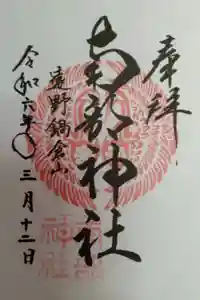 奉拝
南部神社
遠野鍋倉山
令和六年〇三月十二日